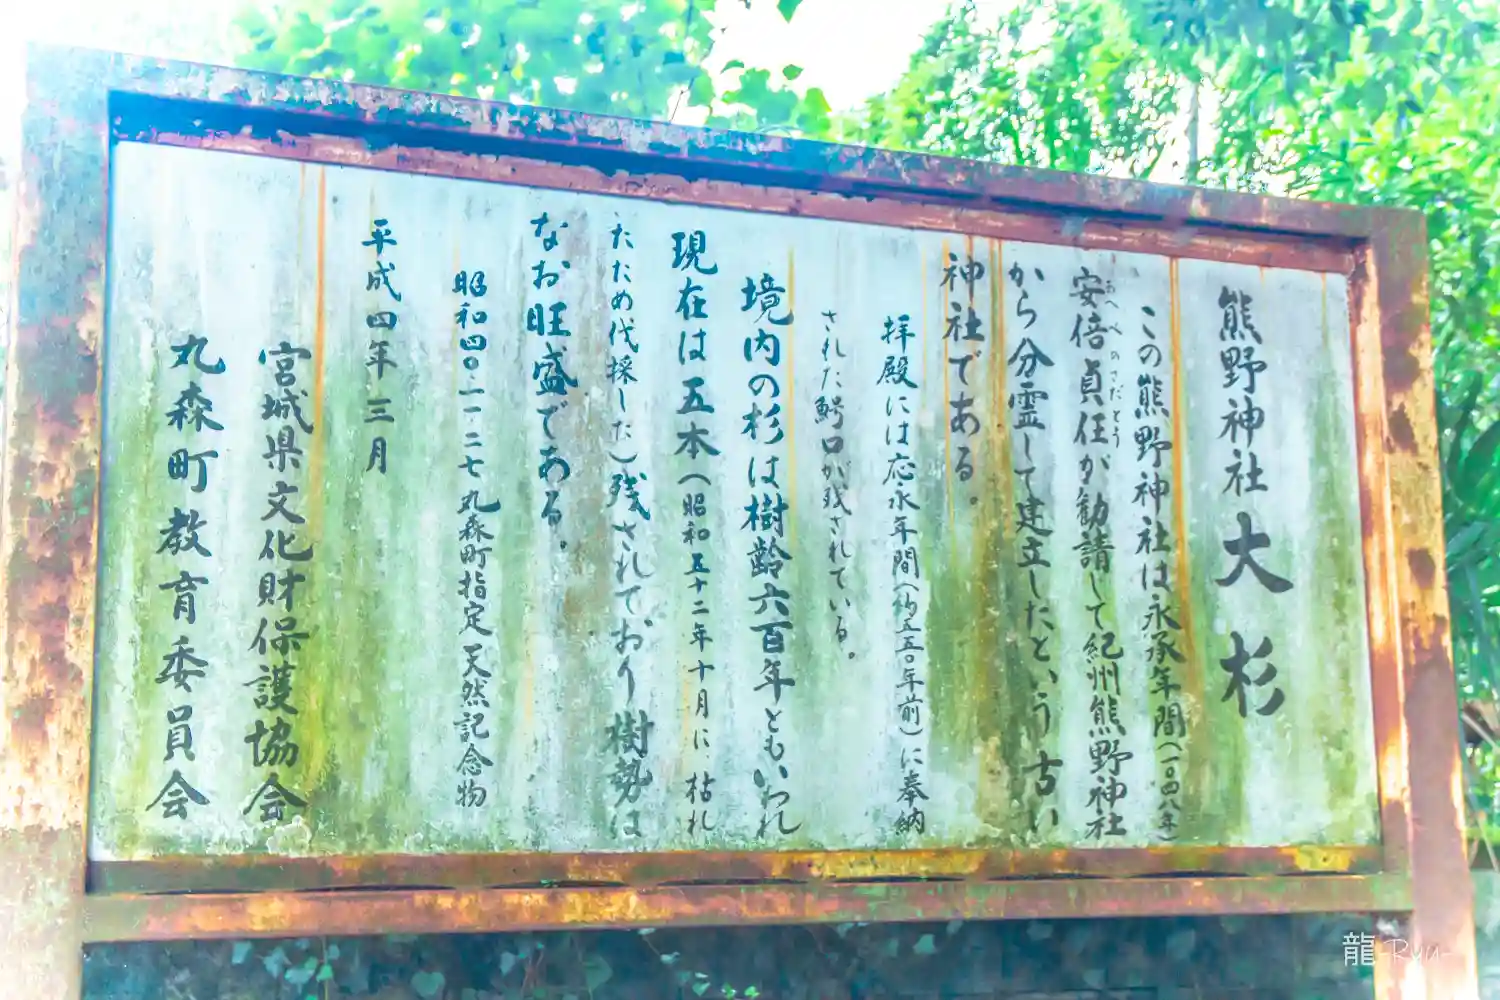 熊野神社 大杉
この熊野神社は永承年間(一〇四八年)
安倍貞任が勧請して紀州熊野神社
あべのさだとう
から分霊して建立したという古い
神社である。
拝殿には応永年間(約五五〇年前)に奉納
された鰐口が残されている。
境内の杉は樹齢六百年ともいわれ
現在は五本(昭和五十二年十月に、枯れ
たため伐採した)残されており樹勢は
なお旺盛である。
昭和四〇・二・二七丸森町指定天然記念物
平成四年三月
宮城県文化財保護協会
丸森町教育委員会
龍-Ryu-